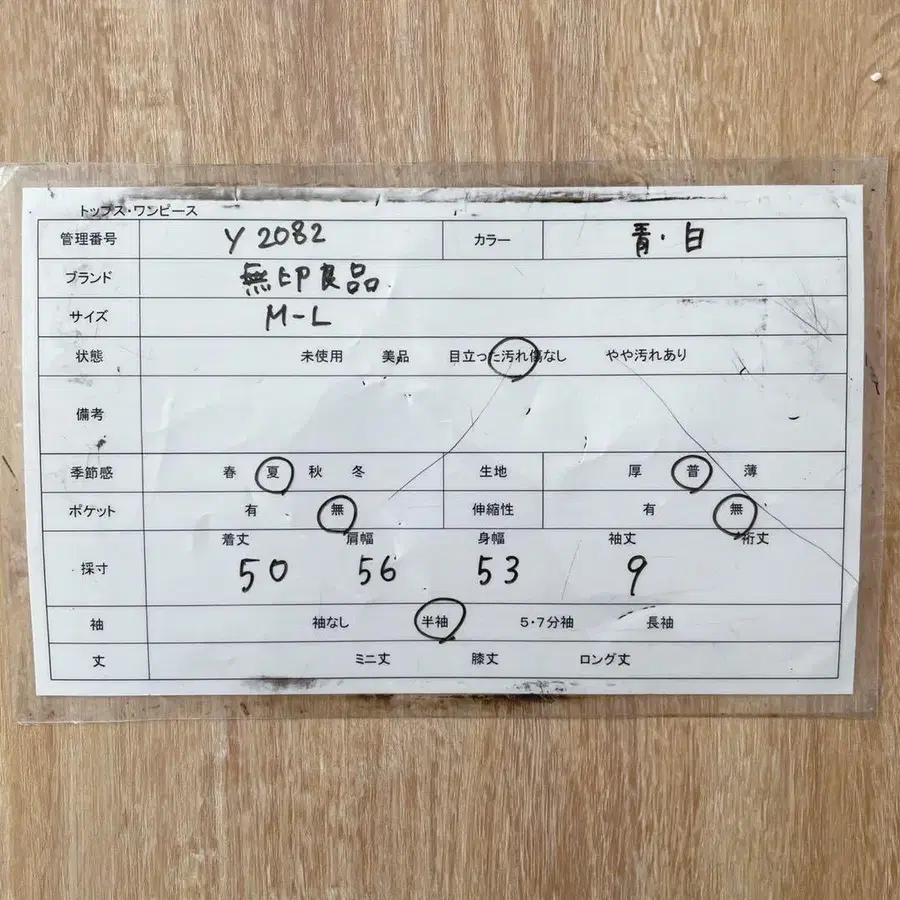 トップス・ワンピース
管理番号 Y 2082 カラー 青・白
ブランド 無印良品
サイズ M-L
状態 未使用 美品 目立った汚れ傷なし やや汚れあり
備考
季節感 春 夏 秋 冬 生地 厚 普 薄
ポケット 有 無 伸縮性 有 無
着丈 肩幅 身幅 袖丈 裄丈
採寸 50 56 53 9
袖 袖なし 半袖 5・7分袖 長袖
丈 ミニ丈 膝丈 ロング丈